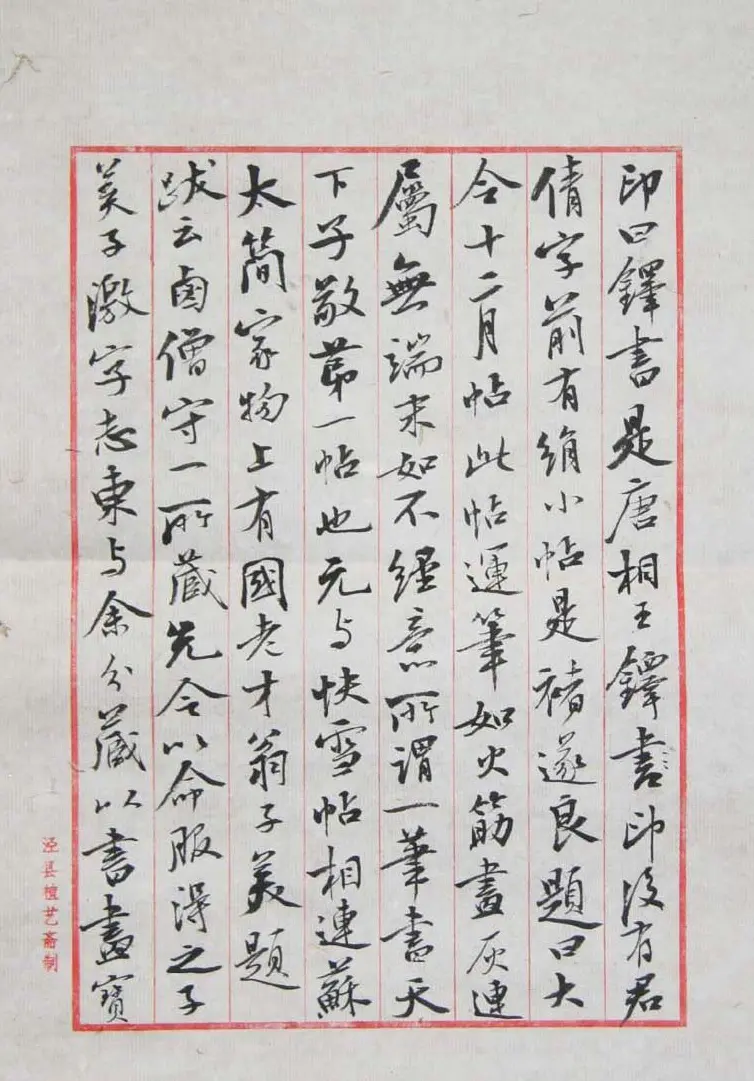 印曰鐸書是唐相王鐸書印後有君
倩字前有絹小帖是褚遂良題曰大
令十二月帖此帖運筆如火筯畫灰連
屬無端末如不經意所謂一筆書天
下子敬第一帖也元与快雪帖相連蘇
太簡家物上有國老才翁子美題
跋云鹵僧守一所藏先令以命服得之子
美子激字志東与余分藏以書畫寶
泾县檀艺斋制